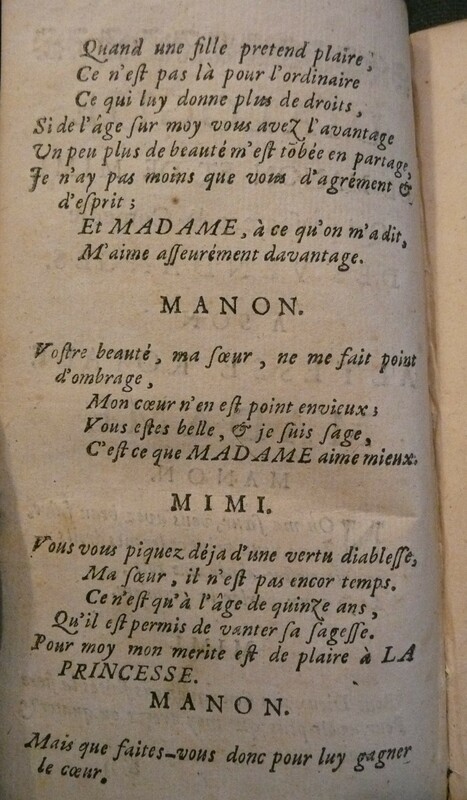 Quand une fille pretend plaire,
Ce n'eſt pas là pour l'ordinaire
Ce qui luy donne plus de droits,
Si de l'âge ſur moy vous avez l'avantage
Un peu plus de beauté m'eſt tõbée en partage,
Je n'ay pas moins que vous d'agrément &
d'eſprit;
Et MADAME, à ce qu'on m'a dit,
M'aime aſſeurément davantage.
MANON.
Voſtre beauté, ma ſœur, ne me fait point
d'ombrage,
Mon cœur n'en eſt point envieux;
Vous eſtes belle, & je ſuis ſage,
C'eſt ce que MADAME aime mieux.
MIMI.
Vous vous piquez déja d'une vertu diableſſe,
Ma ſœur, il n'eſt pas encor temps.
Ce n'eſt qu'à l'âge de quinze ans,
Qu'il eſt permis de vanter ſa ſageſſe.
Pour moy mon merite eſt de plaire à LA
PRINCESSE.
MANON.
Mais que faites-vous donc pour luy gagner
le cœur.